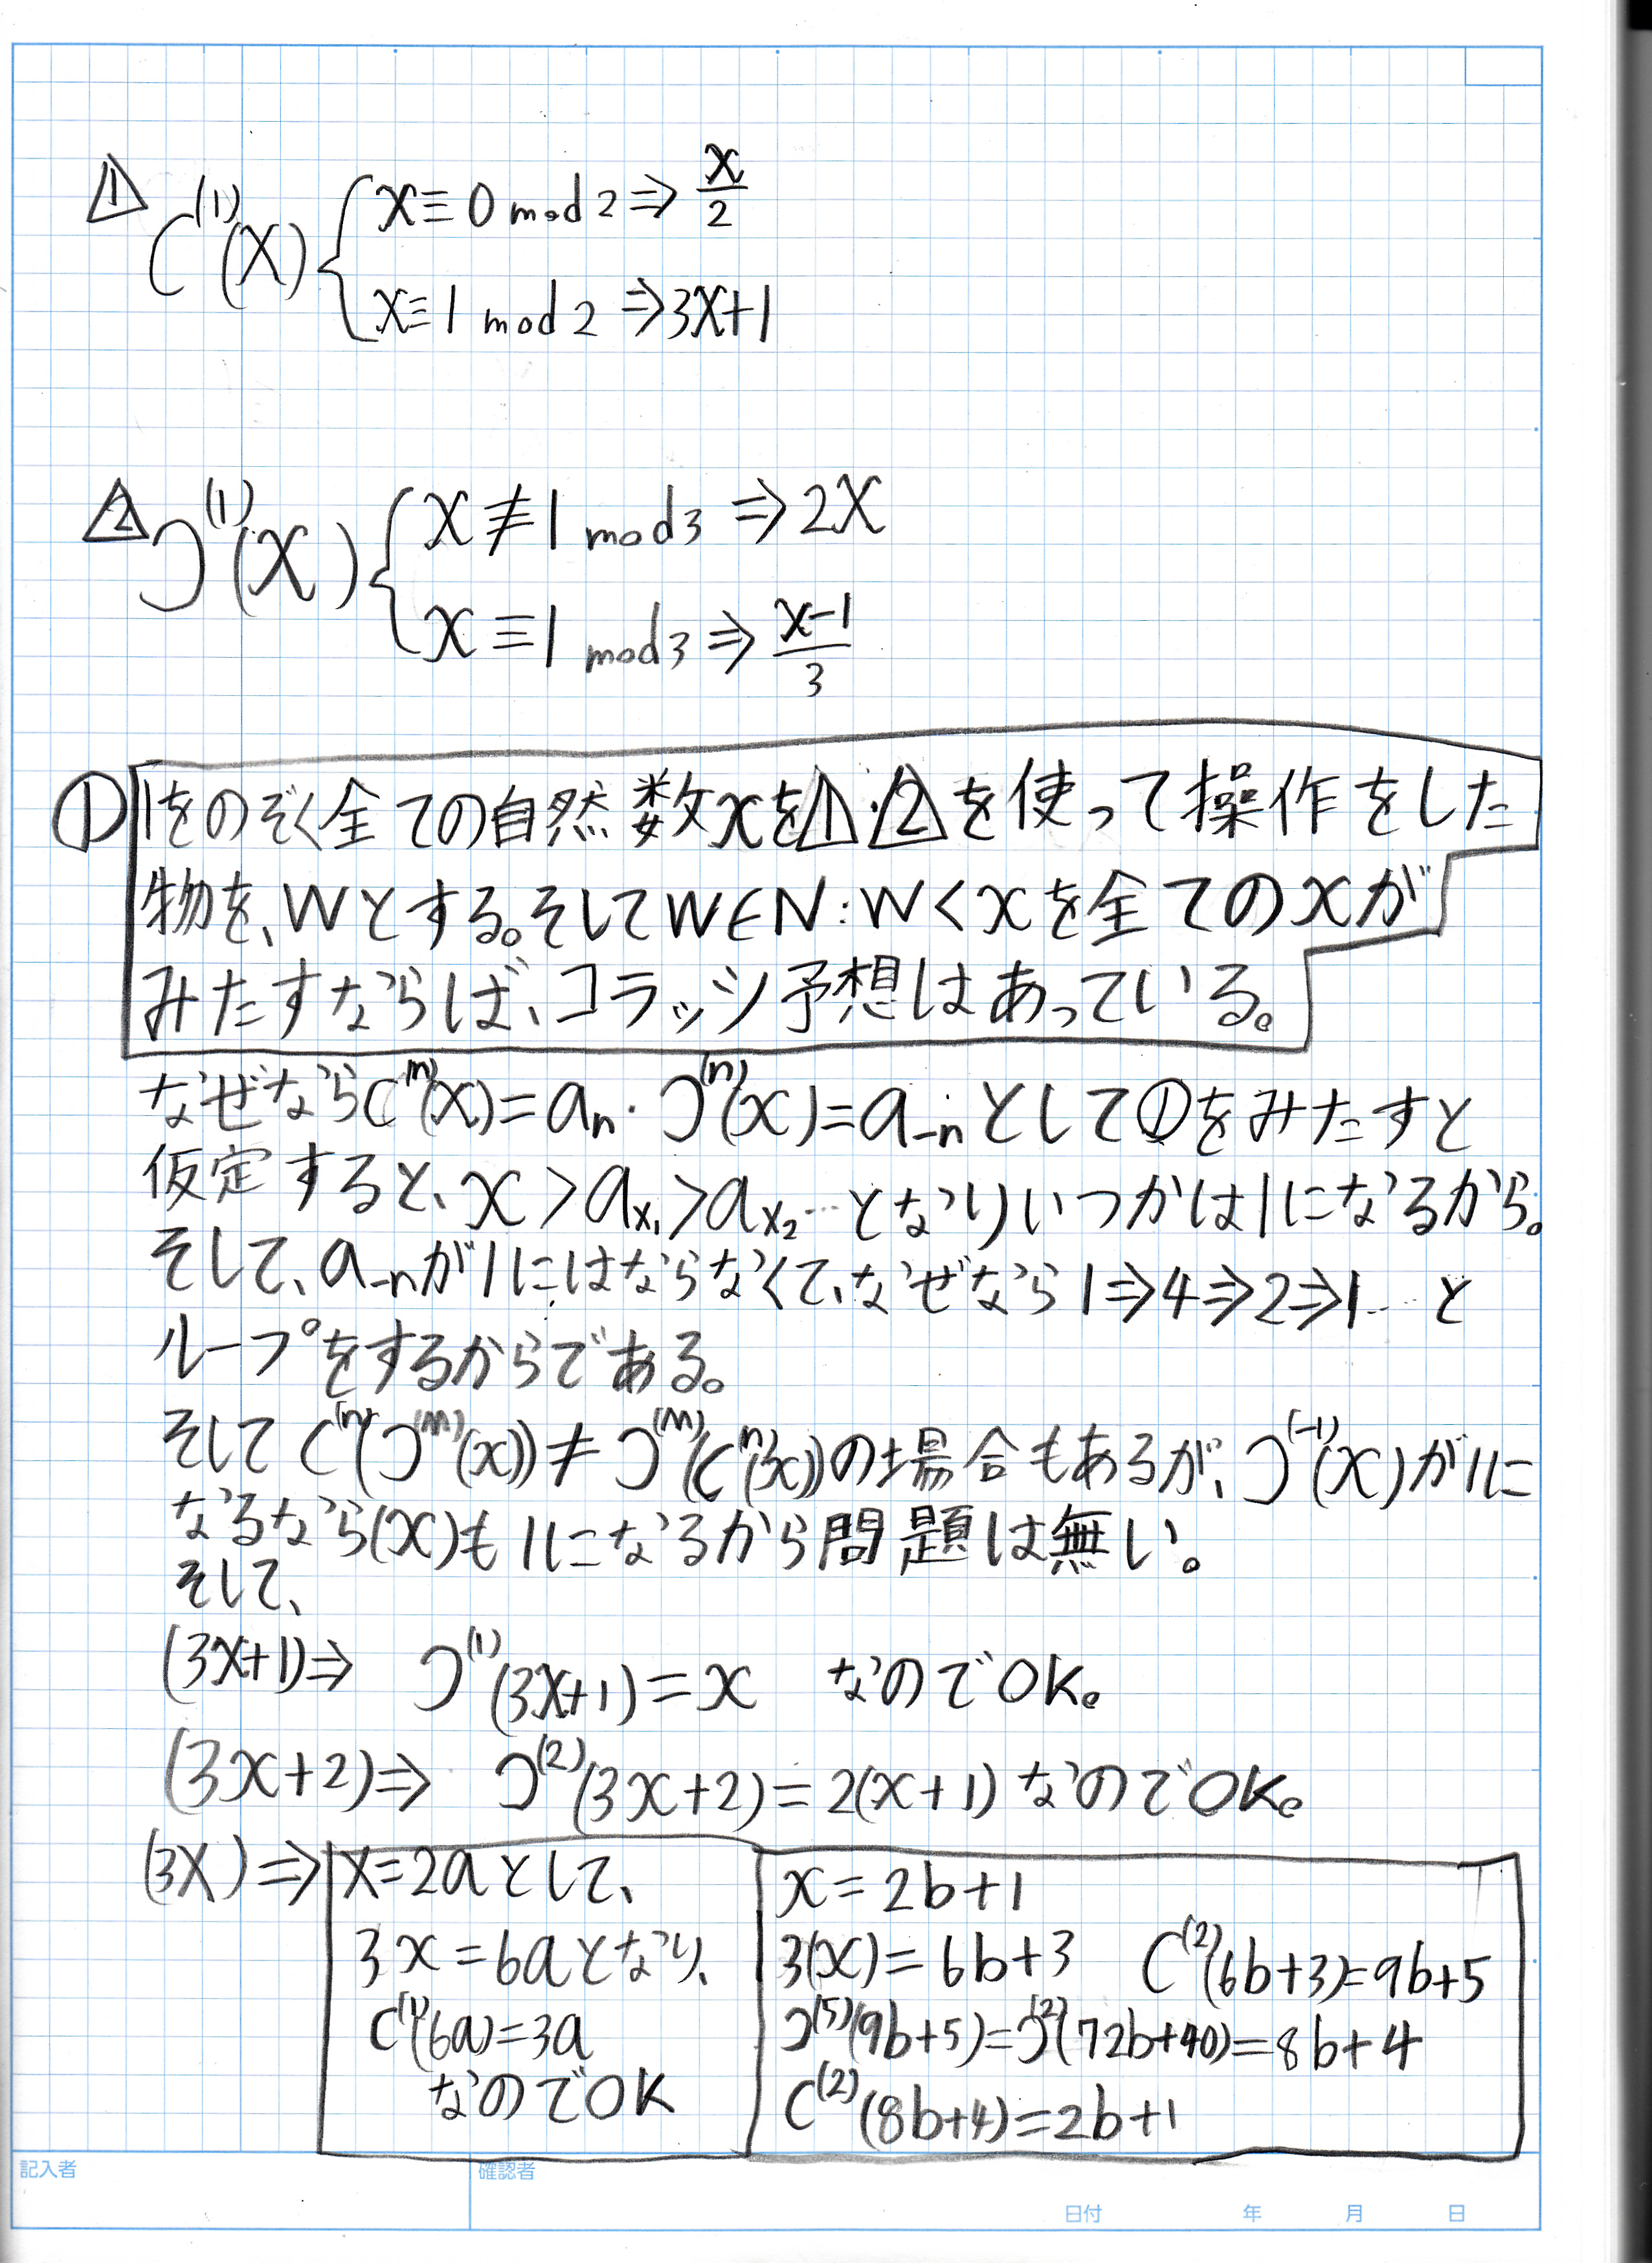 △1 C^(1)(x) { x≡0 mod 2 ⇒ x/2
x≡1 mod 2 ⇒ 3x+1
△2 Ɔ^(1)(x) { x≢1 mod 3 ⇒ 2x
x≡1 mod 3 ⇒ (x-1)/3
① 1をのぞく全ての自然数xを△1・△2を使って操作をした
物を、Wとする。そしてW∈N:W<xを全てのxが
みたすならば、コラッツ予想はあっている。
なぜならC^(n)(x)=a_n・Ɔ^(n)(x)=a_-nとして①をみたすと
仮定すると、x>a_x₁>a_x₂…となりいつかは1になるから。
そして、a_-nが1にはならなくて、なぜなら1⇒4⇒2⇒1…と
ループをするからである。
そしてC^(n)(Ɔ^(m)(x))≠Ɔ^(m)(C^(n)(x))の場合もあるが、Ɔ^(-1)(x)が1に
なるなら(x)も1になるから問題は無い。
そして、
(3x+1)⇒ Ɔ^(1)(3x+1)=x なのでOK。
(3x+2)⇒ Ɔ^(2)(3x+2)=2(x+1)なのでOK。
(3x)⇒ x=2aとして、
3x=6aとなり、
C^(1)(6a)=3a
なのでOK
x=2b+1
3(x)=6b+3 C^(2)(6b+3)=9b+5
Ɔ^(5)(9b+5)=Ɔ^(2)(72b+40)=8b+4
C^(2)(8b+4)=2b+1
記入者
確認者
日付 年 月 日